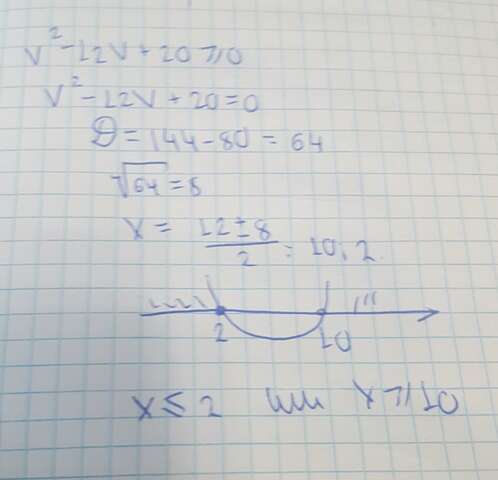 v² - 12v + 20 ⩾ 0
v² - 12v + 20 = 0
D = 144 - 80 = 64
√64 = 8
x = (12 ± 8)/2 = 10; 2
2 10
x ≤ 2 или x ⩾ 10